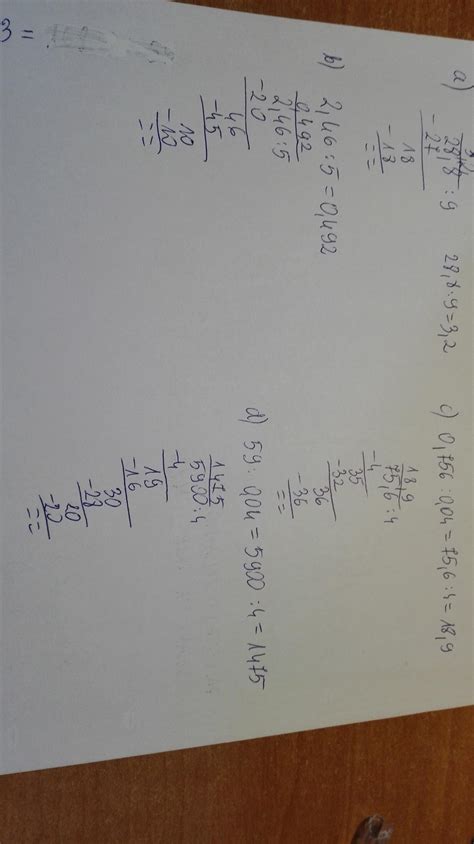 a) 28,8 : 9
-27
18
-18
==
28,8:9=3,2
b) 2,46:5=0,492
0,492
2,46:5
-20
46
-45
10
-10
==
c) 0,756:0,04=75,6:4=18,9
18,9
75,6:4
-4
35
-32
36
-36
==
d) 59:0,04=5900:4=1475
1475
5900:4
-4
19
-16
30
-28
20
-20
==